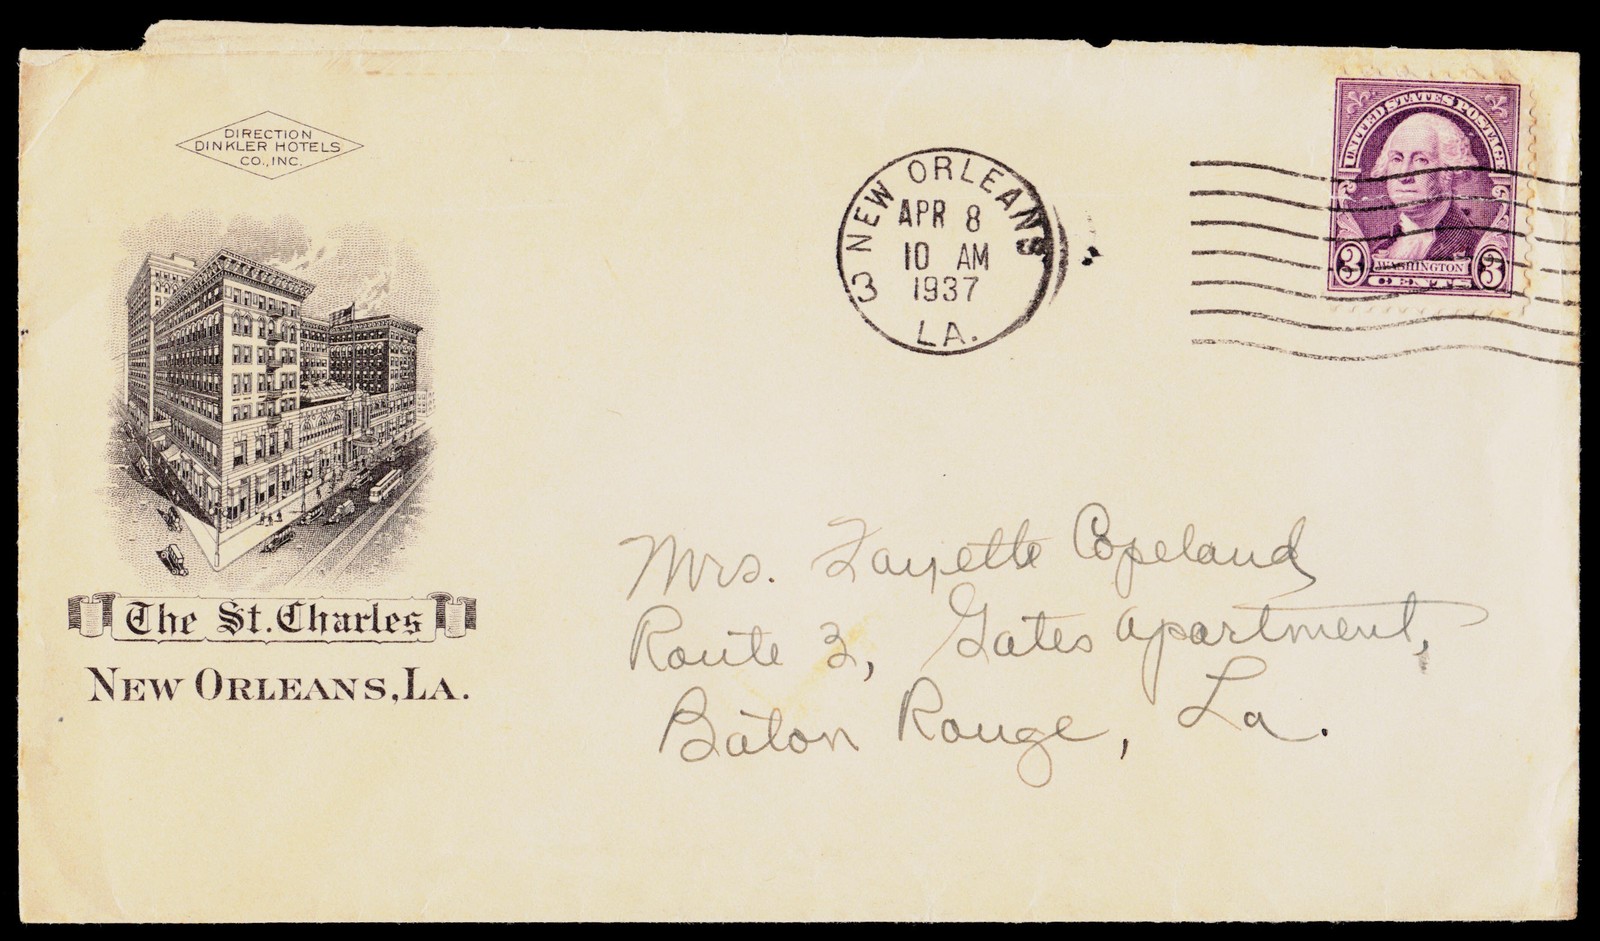 DIRECTION
DINKLER HOTELS
CO., INC.
The St. Charles
NEW ORLEANS, LA.
NEW ORLEANS
APR 8
10 AM
1937
3
LA.
UNITED STATES POSTAGE
3 WASHINGTON 3
CENTS
Mrs. Fayette Copeland
Route 3, Gates Apartment,
Baton Rouge, La.